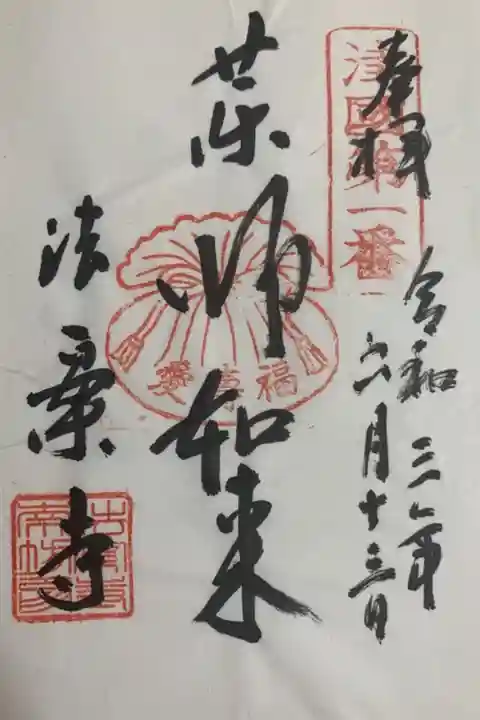 奉拝
国第一番
令和三年
六月十三日
薬師如来
福寿
法薬寺